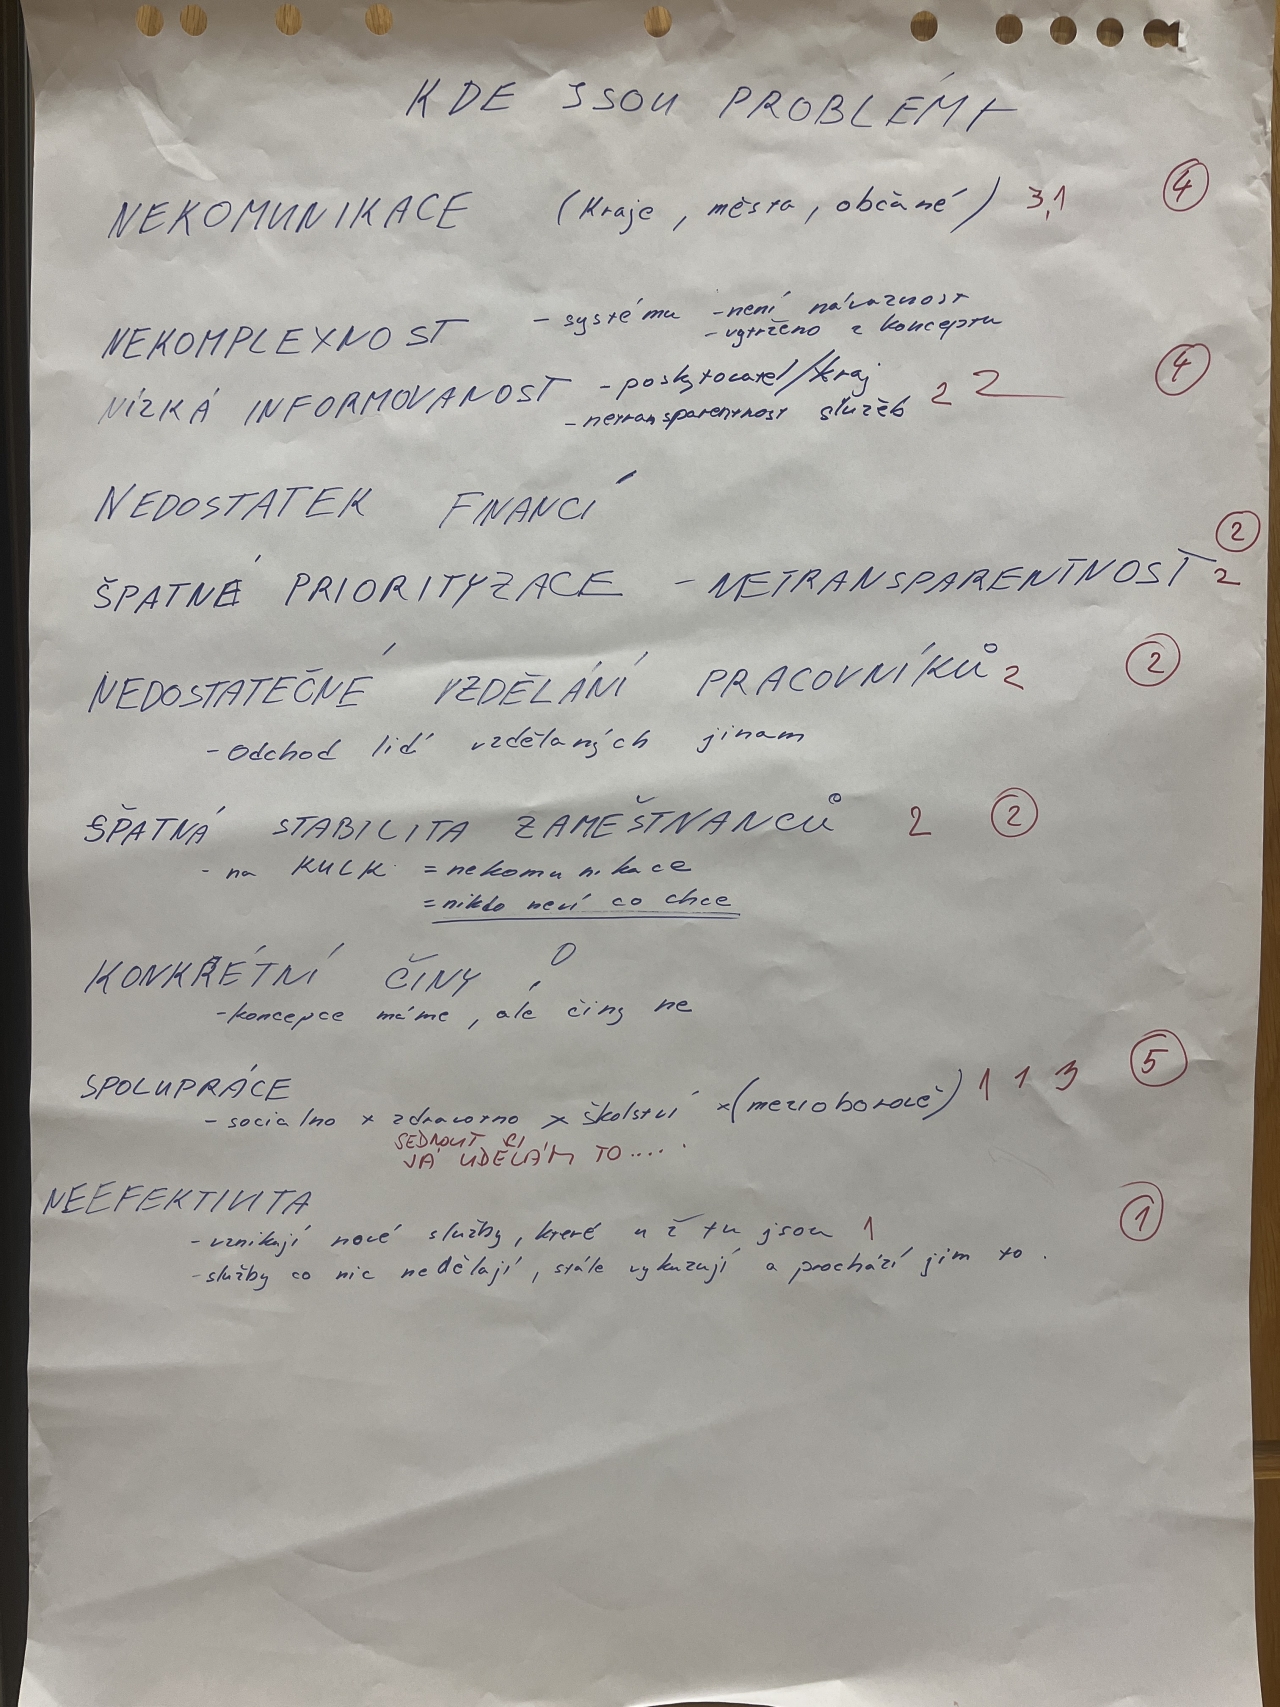 KDE JSOU PROBLÉMY
NEKOMUNIKACE (Kraje, města, občané) 3,1 4
NEKOMPLEXNOST - systému - není návaznost
- vytrženo z konceptu
NÍZKÁ INFORMOVANOST - poskytovatel/kraj 2 2 4
- netransparentnost služeb
NEDOSTATEK FINANCÍ
2
ŠPATNÉ PRIORITYZACE - NETRANSPARENTNOST 2
NEDOSTATEČNÉ VZDĚLÁNÍ PRACOVNÍKŮ 2 2
- Odchod lidí vzdělaných jinam
ŠPATNÁ STABILITA ZAMĚŠTNANCŮ 2 2
- na KULK = nekomunikace
= nikdo neví co chce
KONKRÉTNÍ ČINY
- koncepce máme, ale činy ne
SPOLUPRÁCE 5
- socialno x zdravotno x školství x (mezioborově) 1 1 3
SEDNOUT SI
JÁ UDĚLÁM TO....
NEEFEKTIVITA 1
- vznikají nové služby, které už tu jsou 1
- služby co nic nedělají, stále vykazují a prochází jim to.